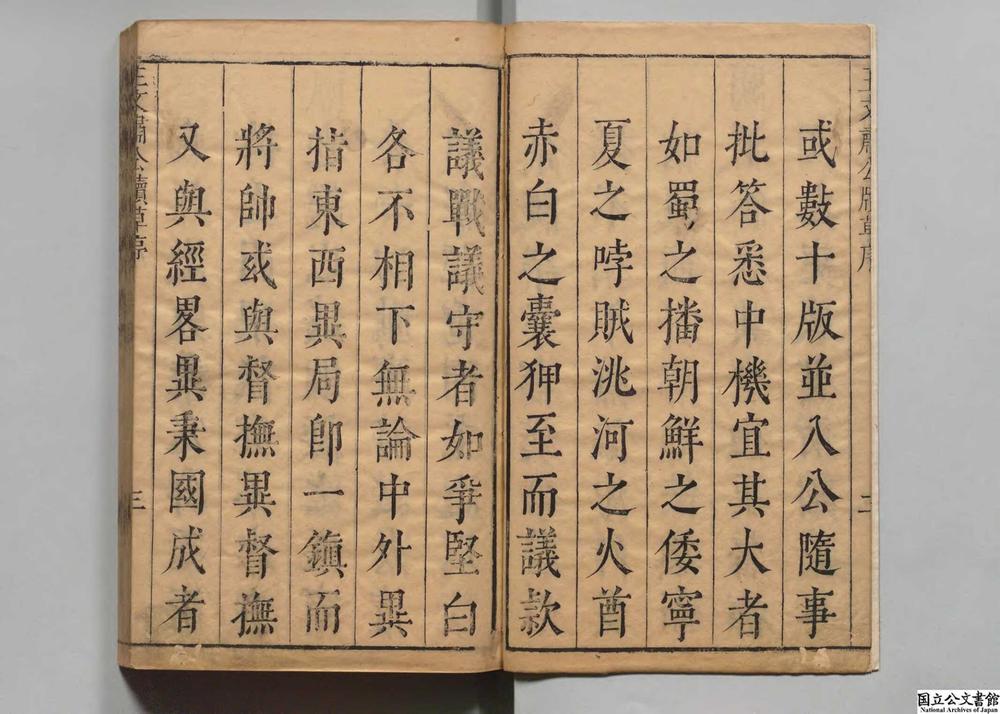 王文肅公牘草序
二
或數十版並入公隨事
批答悉中機宜其大者
如蜀之播朝鮮之倭寧
夏之哱賊洮河之火酋
赤白之囊狎至而議款
議戰議守者如爭堅白
各不相下無論中外異
指東西異局卽一鎮而
將帥或與督撫異督撫
又與經畧異秉國成者
王文肅公牘草序
三
国立公文書館
National Archives of Japan